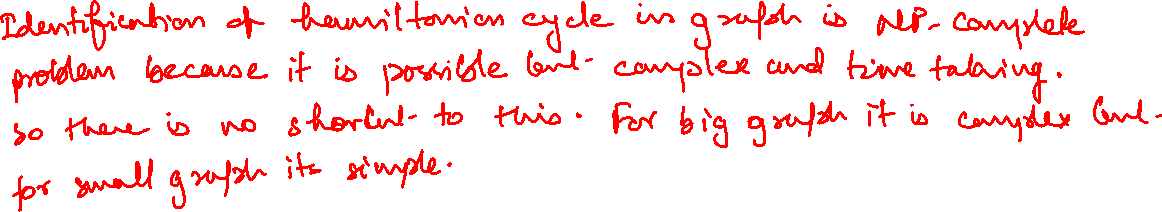 Identification of hamiltonian cycle in graph is NP-complete
problem because it is possible but complex and time taking.
so there is no shortcut to this. For big graph it is complex but
for small graph its simple.